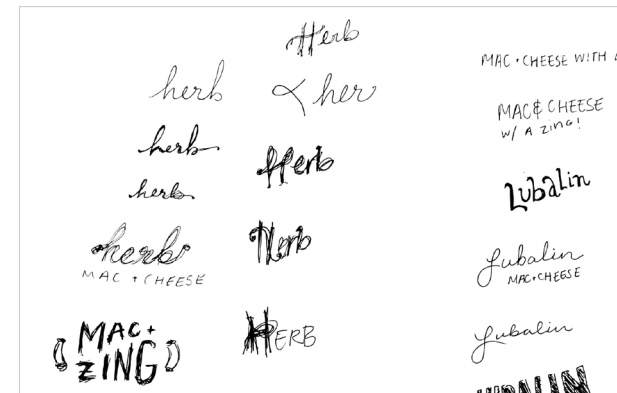 Herb
herb
her
herb
Herb
herb
herb
MAC + CHEESE
Herb
MAC +
ZING
HERB
MAC + CHEESE WITH
MAC & CHEESE
W/ A ZING!
Lubalin
Lubalin
MAC+CHEESE
Lubalin